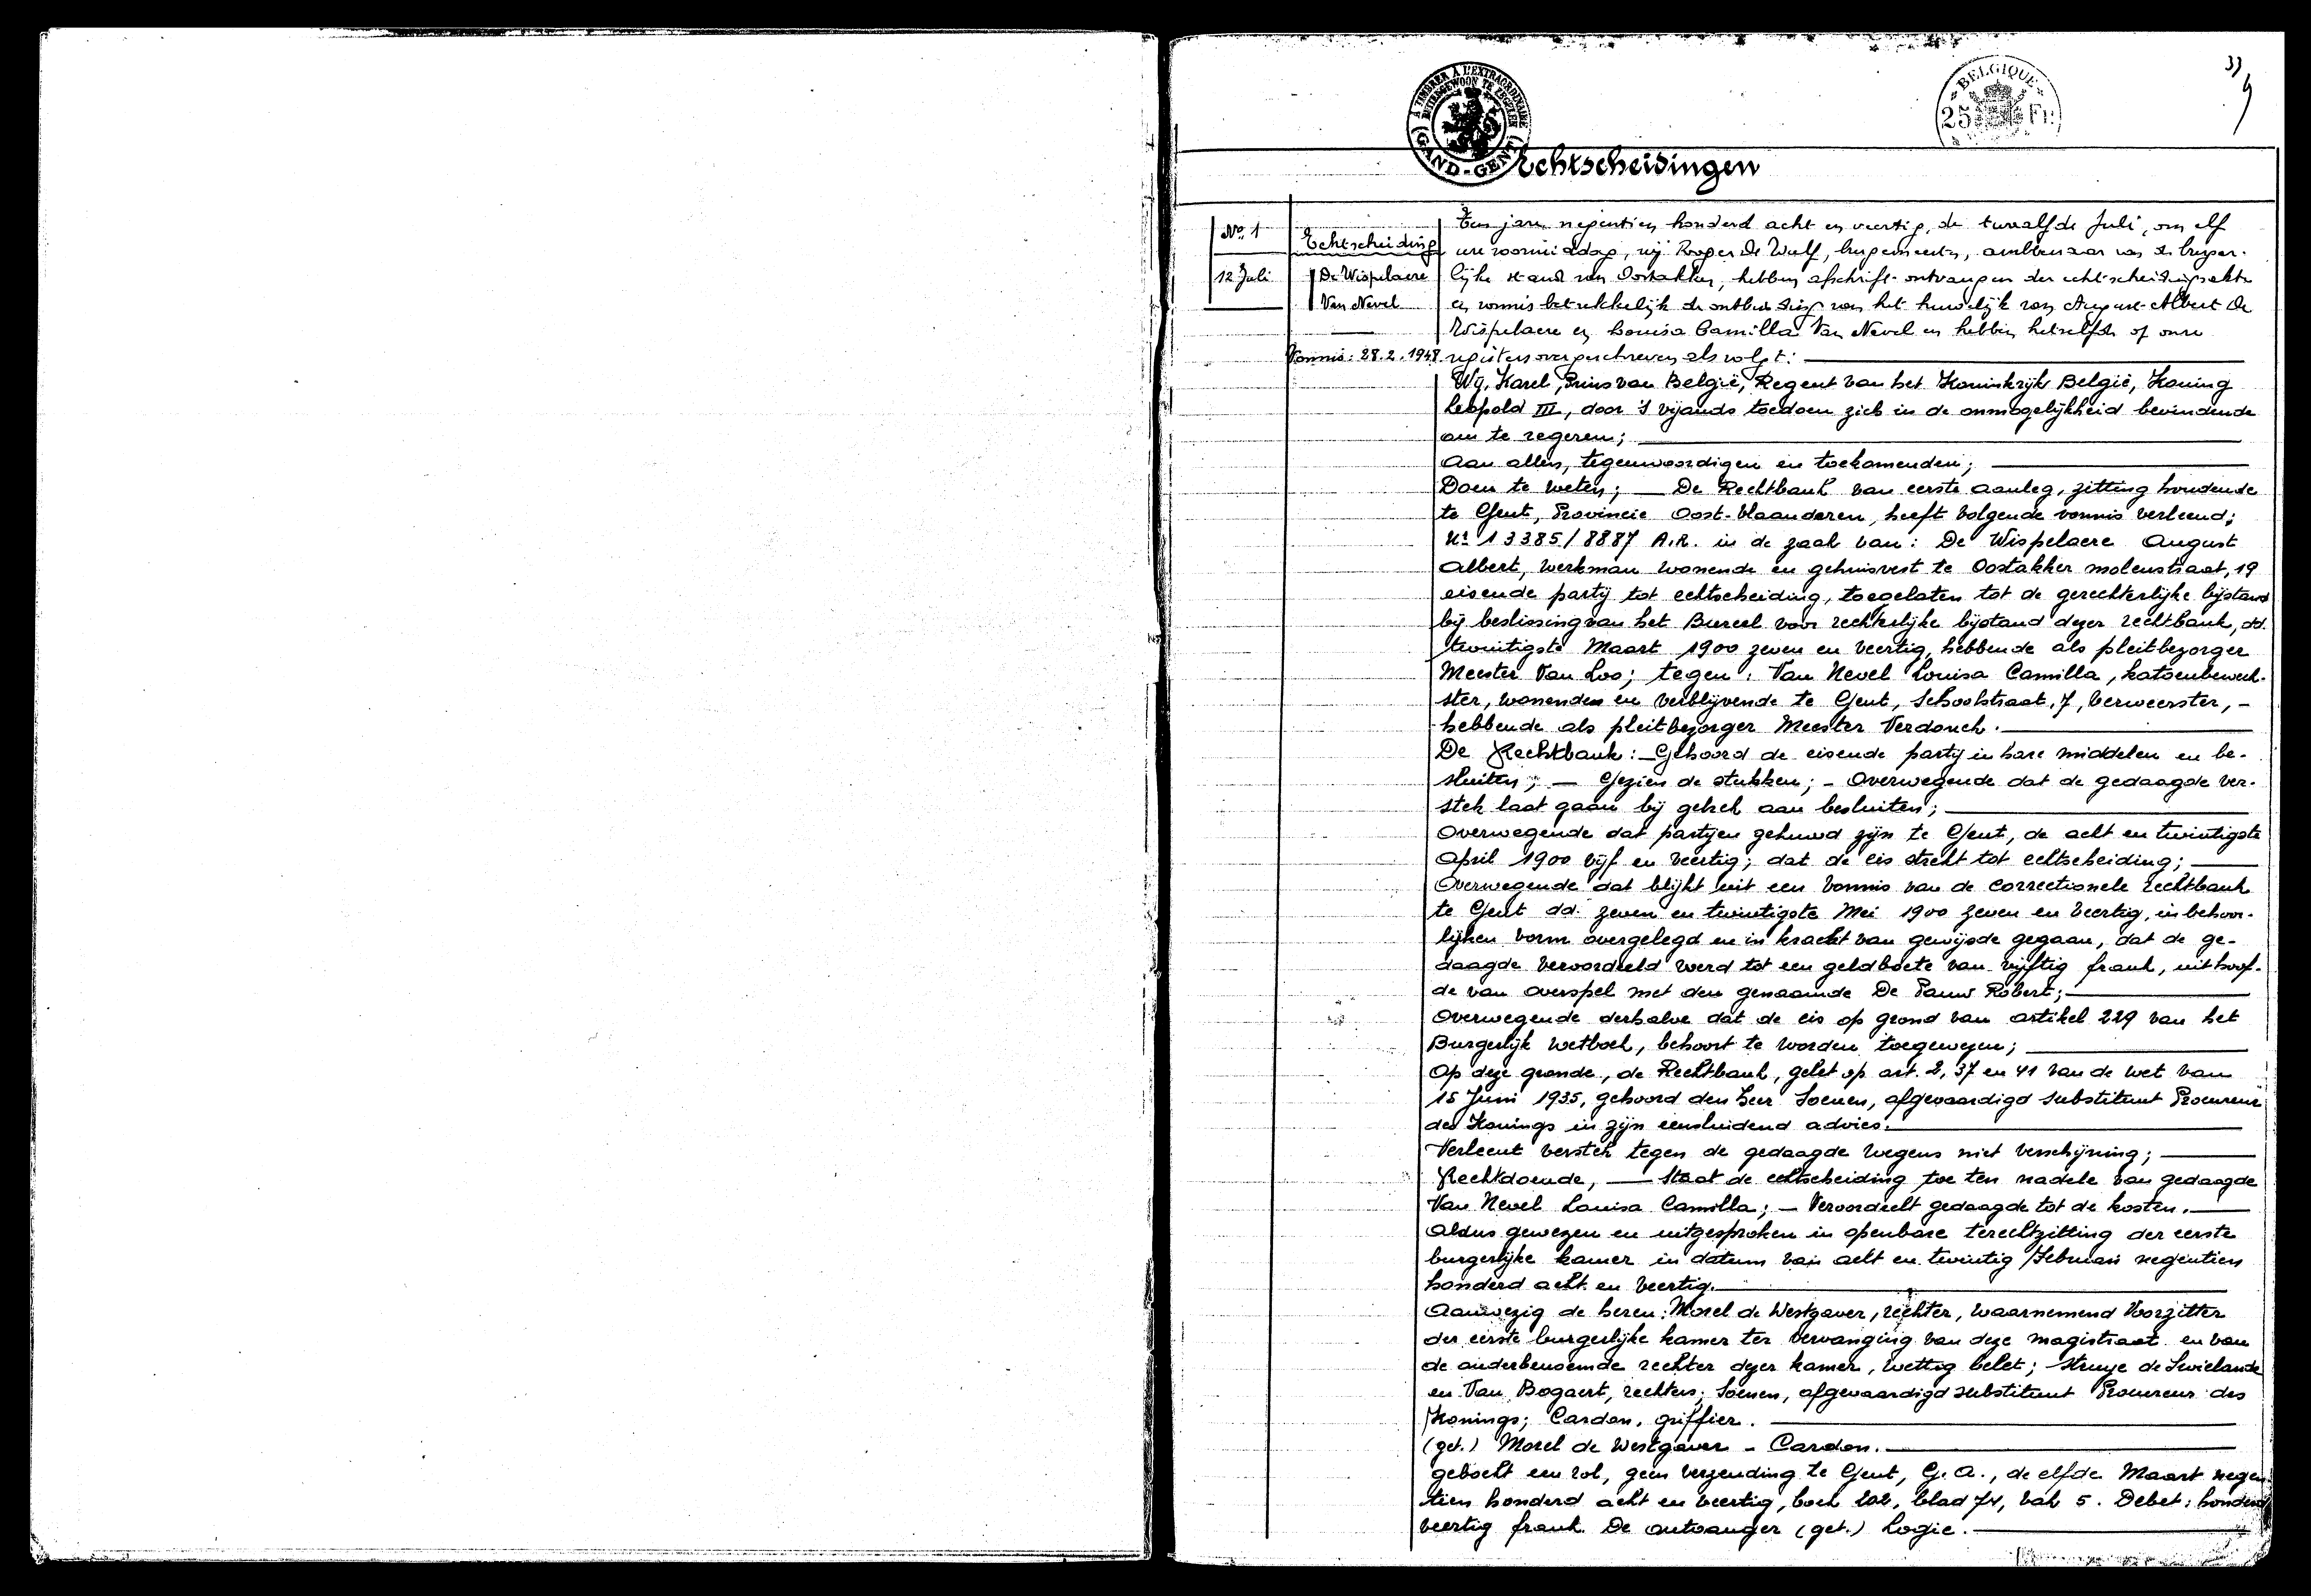 33
À TIMBRER À L'EXTRAORDINAIRE
BUITENGEWOON TE ZEGELEN
GAND-GENT
BELGIQUE
25 FR
Echtscheidingen
No. 1
12 Juli
Echtscheiding
De Wispelaere
Van Nevel
Vonnis: 28.2.1948
Ten jare negentien honderd acht en veertig, de twaalfde Juli, om elf
ure voormiddag, wij Roger De Wulf, burgemeester, ambtenaar van de burger-
lijke stand van Oostakker, hebben afschrift ontvangen der echtscheidingsakte
en vonnis betrekkelijk de ontbinding van het huwelijk van August-Albert De
Wispelaere en Louisa Camilla Van Nevel en hebben hetzelfde op onze
registers overgeschreven als volgt:
Wij, Karel, Prins van België, Regent van het Koninkrijk België, Koning
Leopold III, door 's vijands toedoen zich in de onmogelijkheid bevindende
om te regeren;
Aan allen, tegenwoordigen en toekomenden;
Doen te weten; — De Rechtbank van eerste aanleg, zitting houdende
te Gent, Provincie Oost-Vlaanderen, heeft volgende vonnis verleend;
Nr 13385/8887 A.R. in de zaak van: De Wispelaere August
Albert, werkman wonende en gehuisvest te Oostakker molenstraat, 19
eisende partij tot echtscheiding, toegelaten tot de gerechterlijke bijstand
bij beslissing van het Bureel voor rechterlijke bijstand dezer rechtbank, dd.
twintigste Maart 1900 zeven en veertig, hebbende als pleitbezorger
Meester Van Loo; tegen: Van Nevel Louisa Camilla, katoenbewerk-
ster, wonende en verblijvende te Gent, Schoolstraat, 7, verweerster, -
hebbende als pleitbezorger Meester Verdonck.
De Rechtbank: - Gehoord de eisende partij in hare middelen en be-
sluiten; — Gezien de stukken; - Overwegende dat de gedaagde ver-
stek laat gaan bij gebrek aan besluiten;
Overwegende dat partijen gehuwd zijn te Gent, de acht en twintigste
April 1900 vijf en veertig; dat de eis strekt tot echtscheiding;
Overwegende dat blijkt uit een vonnis van de correctionele rechtbank
te Gent dd. zeven en twintigste Mei 1900 zeven en veertig, in behoor-
lijken vorm overgelegd en in kracht van gewijsde gegaan, dat de ge-
daagde veroordeeld werd tot een geldboete van vijftig frank, uit hoof-
de van overspel met den genaamde De Pauw Robert;
Overwegende derhalve dat de eis op grond van artikel 229 van het
Burgerlijk wetboek, behoort te worden toegewezen;
Op deze gronde, de Rechtbank, gelet op art. 2, 37 en 41 van de wet van
15 Juni 1935, gehoord den heer Soenen, afgevaardigd substituut Procureur
des Konings in zijn eensluidend advies.
Verleent verstek tegen de gedaagde wegens niet verschijning;
Rechtdoende, — Staat de echtscheiding toe ten nadele van gedaagde
Van Nevel Louisa Camilla; — Veroordeelt gedaagde tot de kosten.
Aldus gewezen en uitgesproken in openbare terechtzitting der eerste
burgerlijke kamer in datum van acht en twintig Februari negentien
honderd acht en veertig.
Aanwezig de heren: Morel de Westgaver, rechter, waarnemend Voorzitter
der eerste burgerlijke kamer ter vervanging van deze magistraat en van
de anderbenoemde rechter dezer kamer, wettig belet; Struye de Swielande
en Van Bogaert, rechters; Soenen, afgevaardigd substituut Procureur des
Konings; Cardon, griffier.
(get.) Morel de Westgaver - Cardon.
geboekt een rol, geen verzending te Gent, G.A., de elfde Maart negen-
tien honderd acht en veertig, boek 202, blad 74, vak 5. Debet: honderd
veertig frank. De ontvanger (get.) Logie.